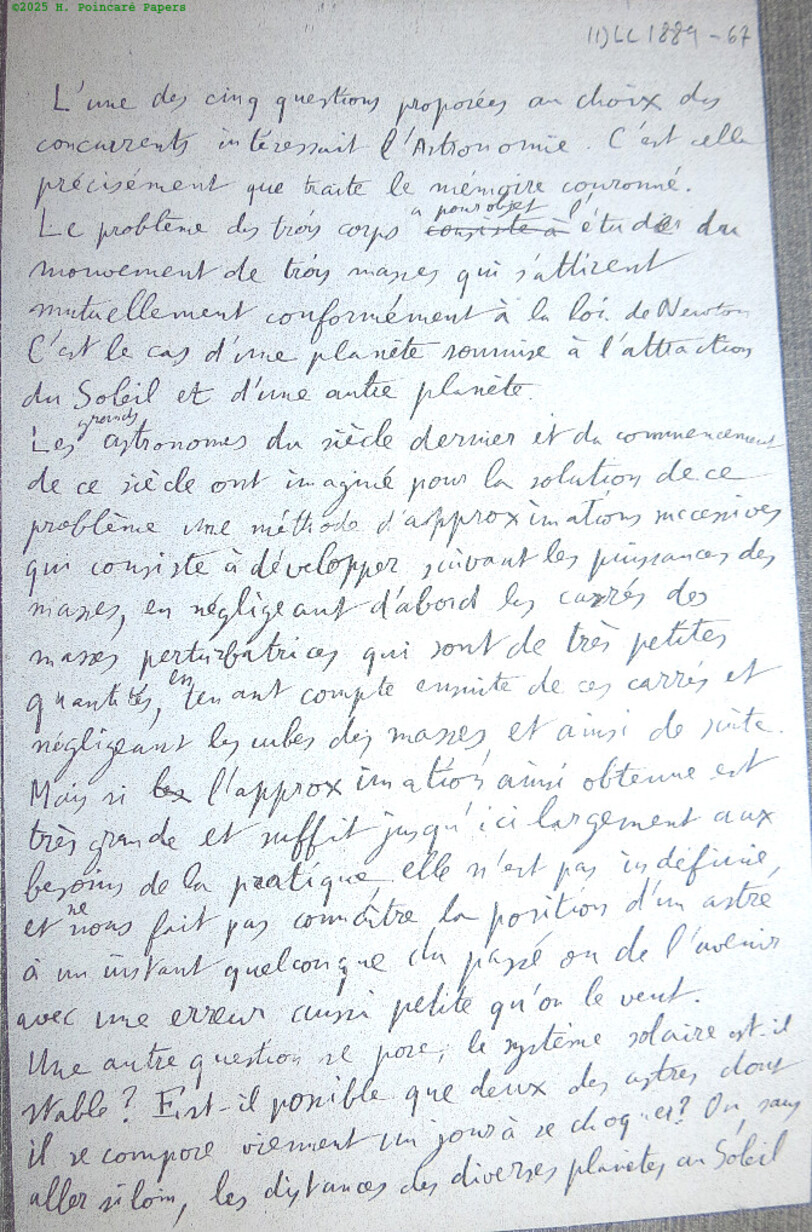 ©2025 H. Poincaré Papers
L'une des cinq questions proposées au choix des
concurrents intéressait l'Astronomie. C'est celle
précisément que traite le mémoire couronné.
a pour objet l'
Le problème des trois corps consiste à étudier du
mouvement de trois masses qui s'attirent
mutuellement conformément à la loi de Newton
C'est le cas d'une planète soumise à l'attraction
du Soleil et d'une autre planète.
grands
Les astronomes du siècle dernier et du commencement
de ce siècle ont imaginé pour la solution de ce
problème une méthode d'approximations successives
qui consiste à développer suivant les puissances des
masses, en négligeant d'abord les carrés des
masses perturbatrices qui sont de très petites
en
quantités, tenant compte ensuite de ces carrés et
négligeant les cubes des masses, et ainsi de suite.
Mais si les l'approximation ainsi obtenue est
très grande et suffit jusqu'ici largement aux
besoins de la pratique, elle n'est pas indéfinie,
ne
et nous fait pas connaître la position d'un astre
à un instant quelconque du passé ou de l'avenir
avec une erreur aussi petite qu'on le veut.
Une autre question se pose; le système solaire est-il
stable? Est-il possible que deux des astres dont
il se compose viennent un jour à se choquer? Ou, sans
aller si loin, les distances des diverses planètes au Soleil